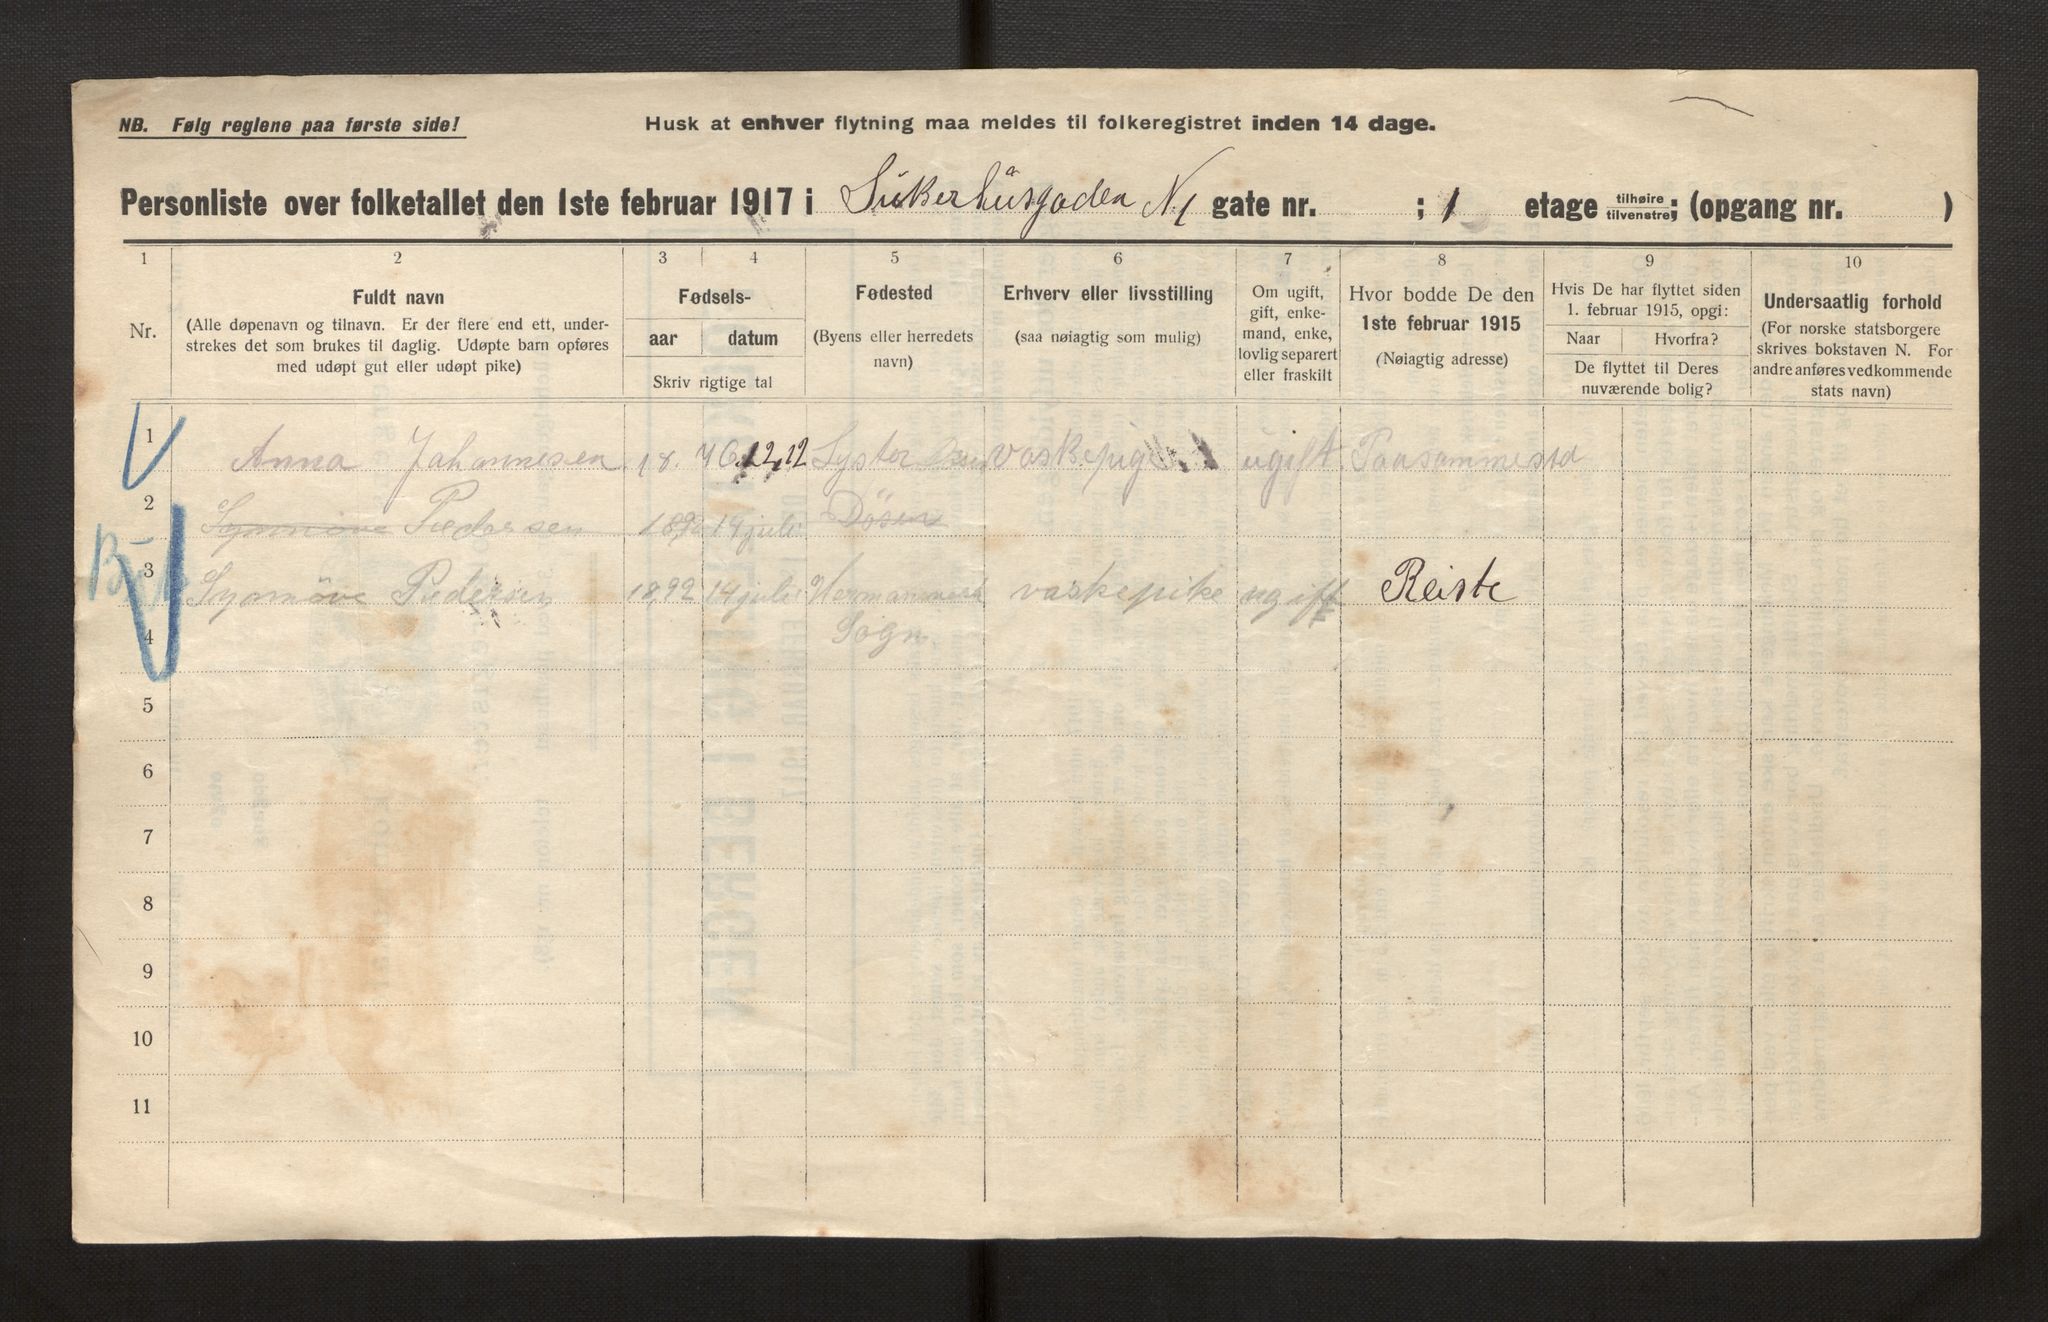 NB. Følg reglene paa første side! Husk at enhver flytning maa meldes til folkeregistret inden 14 dage.
Personliste over folketallet den 1ste februar 1917 i Sukerhusgaden N1 gate nr. ; 1 etage tilhøire tilvenstre; (opgang nr. )
1 2 3 4 5 6 7 8 9 10
Nr.
Fuldt navn
(Alle døpenavn og tilnavn. Er der flere end ett, under-
strekes det som brukes til daglig. Udøpte barn opføres
med udøpt gut eller udøpt pike)
Fødsels-
aar datum
Skriv rigtige tal
Fødested
(Byens eller herredets
navn)
Erhverv eller livsstilling
(saa nøiagtig som mulig)
Om ugift,
gift, enke-
mand, enke,
lovlig separert
eller fraskilt
Hvor bodde De den
1ste februar 1915
(Nøiagtig adresse)
Hvis De har flyttet siden
1. februar 1915, opgi:
Naar Hvorfra?
De flyttet til Deres
nuværende bolig?
Undersaatlig forhold
(For norske statsborgere
skrives bokstaven N. For
andre anføres vedkommende
stats navn)
1 Anna Johannesen 18.76 12.12 Lyster vaskepige ugift Paasammested
2 Synnöve Pedersen 1892 14 juli Dösen
3 Synnöve Pedersen 1892 14 juli vaskepike ugift Reiste
4 Sogn
5
6
7
8
9
10
11